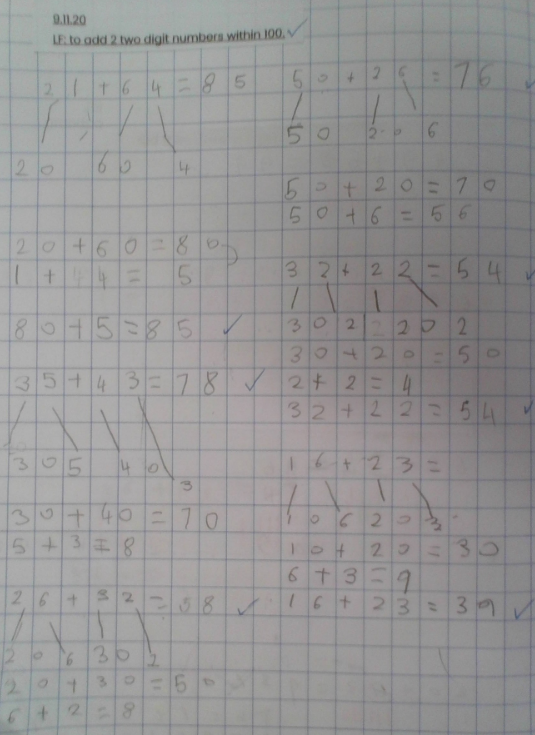 9.11.20
LF: to add 2 two digit numbers within 100.
21+64=85
20 60 4
20+60=80
1+44= 5
80+5=85
35+43=78
305 40 3
30+40=70
5+3=8
26+32=58
20 6 30 2
20+30=50
6+2=8
50+26=76
50 20 6
50+20=70
50+6=56
32+22=54
30 2 = 20 2
30+20=50
2+2=4
32+22=54
16+23=
10 6 20 3
10+20=30
6+3=9
16+23=39